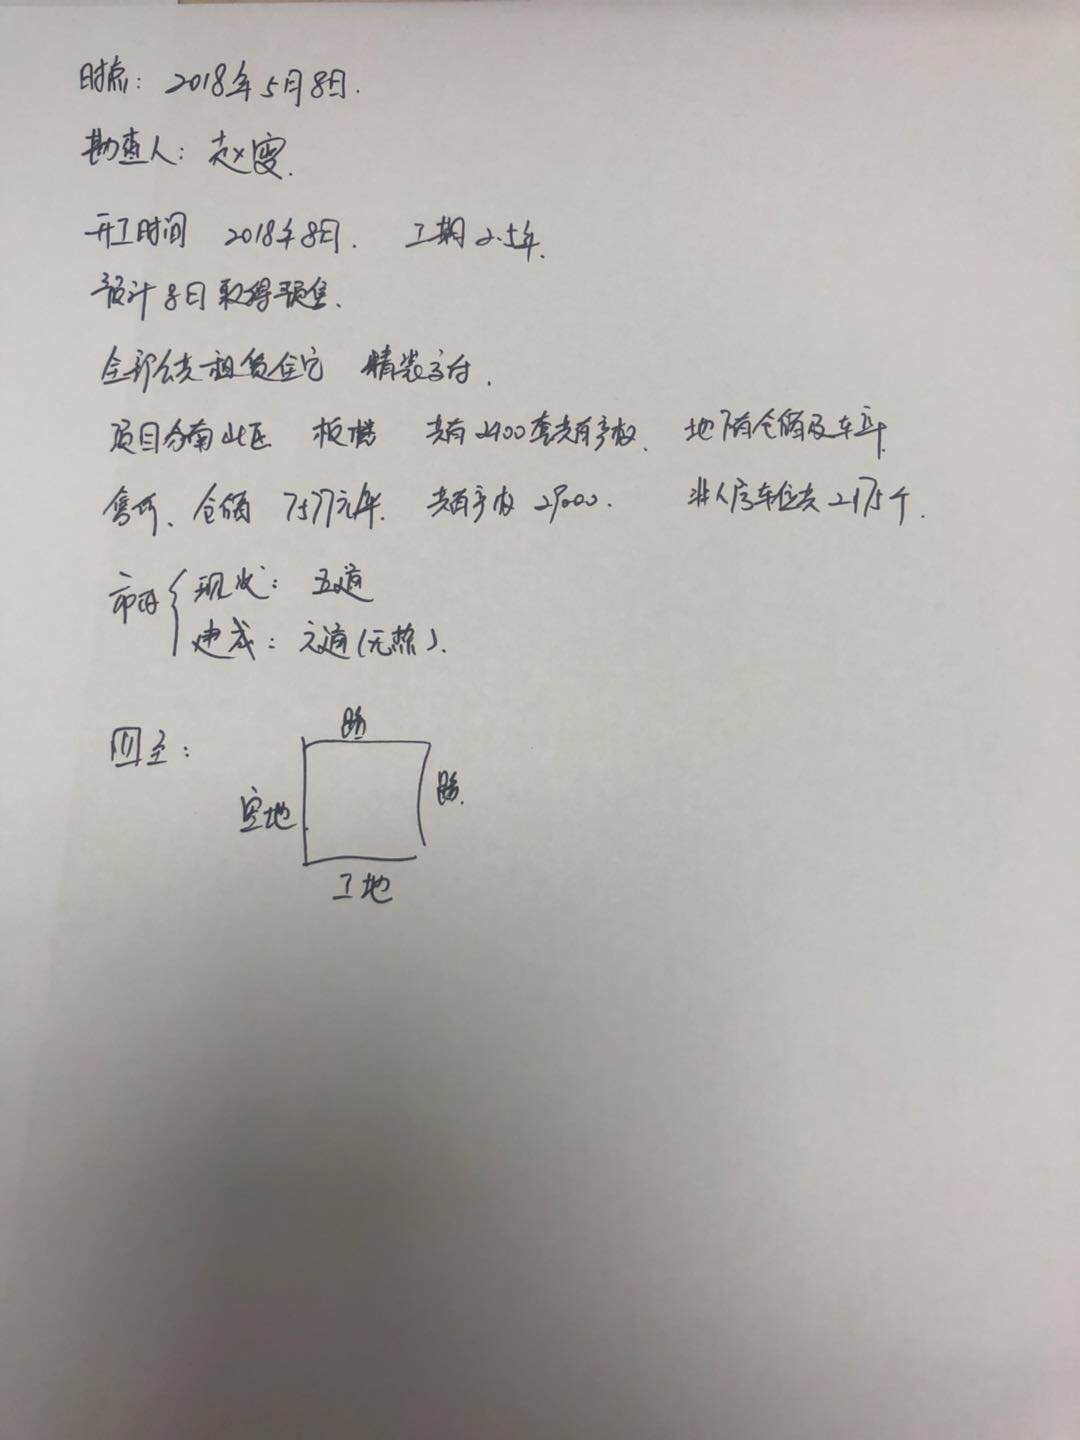 时点: 2018年5月8日.
勘查人: 赵雯.
开工时间 2018年8日. 工期2.5年.
预计8日取得预售.
全部公共租赁住宅 精装交付.
项目分南北区 板楼 共有2400套共有产权. 地下有仓储及车库.
售价、仓储 7577元/年. 共有产权 29000. 非人防车位共2175个.
市政
现状: 五通
建成: 六通(无热).
四至:
路
空地
路.
工地